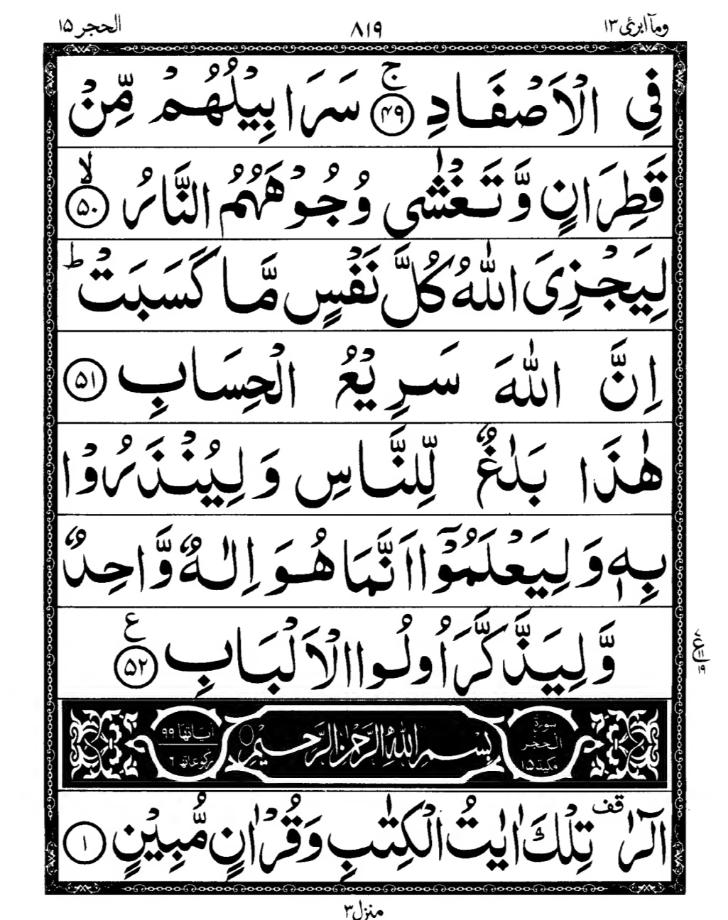 وما ابرئ ١٣
٨١٩
الحجر ١٥
فِی الْاَصْفَادِ ۚ﴿۴۹﴾ سَرَابِیْلُهُمْ مِّنْ
قَطِرَانٍ وَّ تَغْشٰی وُجُوْهَهُمُ النَّارُ ۙ﴿۵۰﴾
لِیَجْزِیَ اللّٰهُ كُلَّ نَفْسٍ مَّا كَسَبَتْ ؕ
اِنَّ اللّٰهَ سَرِیْعُ الْحِسَابِ ﴿۵۱﴾
هٰذَا بَلٰغٌ لِّلنَّاسِ وَ لِیُنْذَرُوْا
بِهٖ وَ لِیَعْلَمُوْۤا اَنَّمَا هُوَ اِلٰهٌ وَّاحِدٌ
وَّ لِیَذَّكَّرَ اُولُوا الْاَلْبَابِ ﴿۵۲﴾ ع
ع ٧ ١١ ١٩
سورة الحجر مكية ١٥
بِسْمِ اللّٰهِ الرَّحْمٰنِ الرَّحِیْمِ
اٰیاتها ٩٩
ركوعاتها ٦
الٓرٰ ۫ تِلْكَ اٰیٰتُ الْكِتٰبِ وَ قُرْاٰنٍ مُّبِیْنٍ ﴿۱﴾
منزل ٣